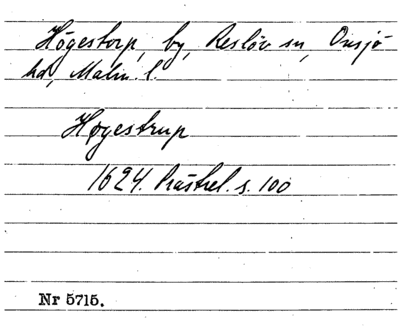 Högestorp, by, Reslöv sn, Onsjö
hd, Malm. l.
Høgestrup
1624. Prästrel. s. 100
Nr 5715.